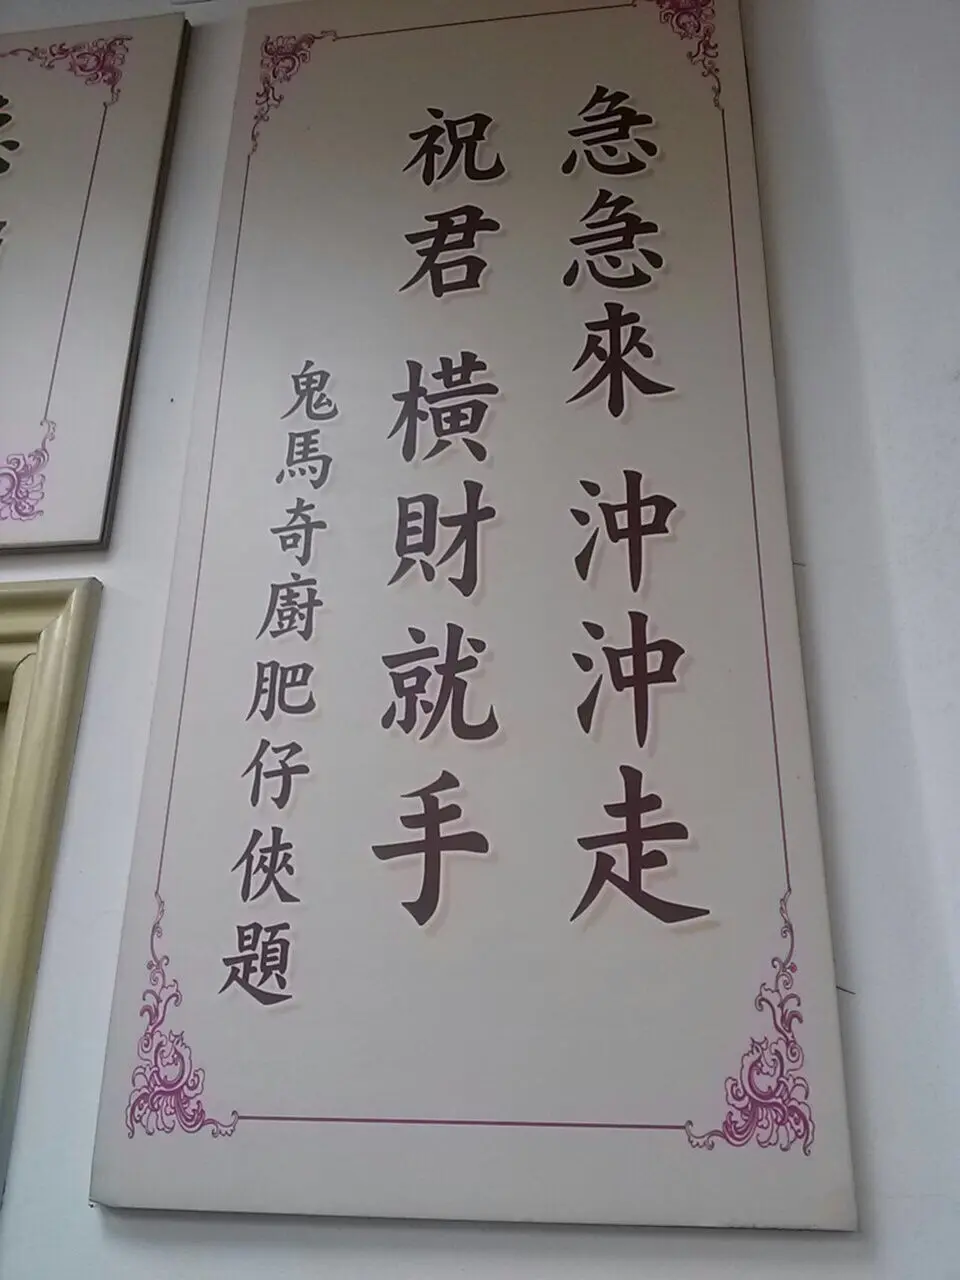 急急來 沖沖走
祝君 橫財就手
鬼馬奇廚肥仔俠題